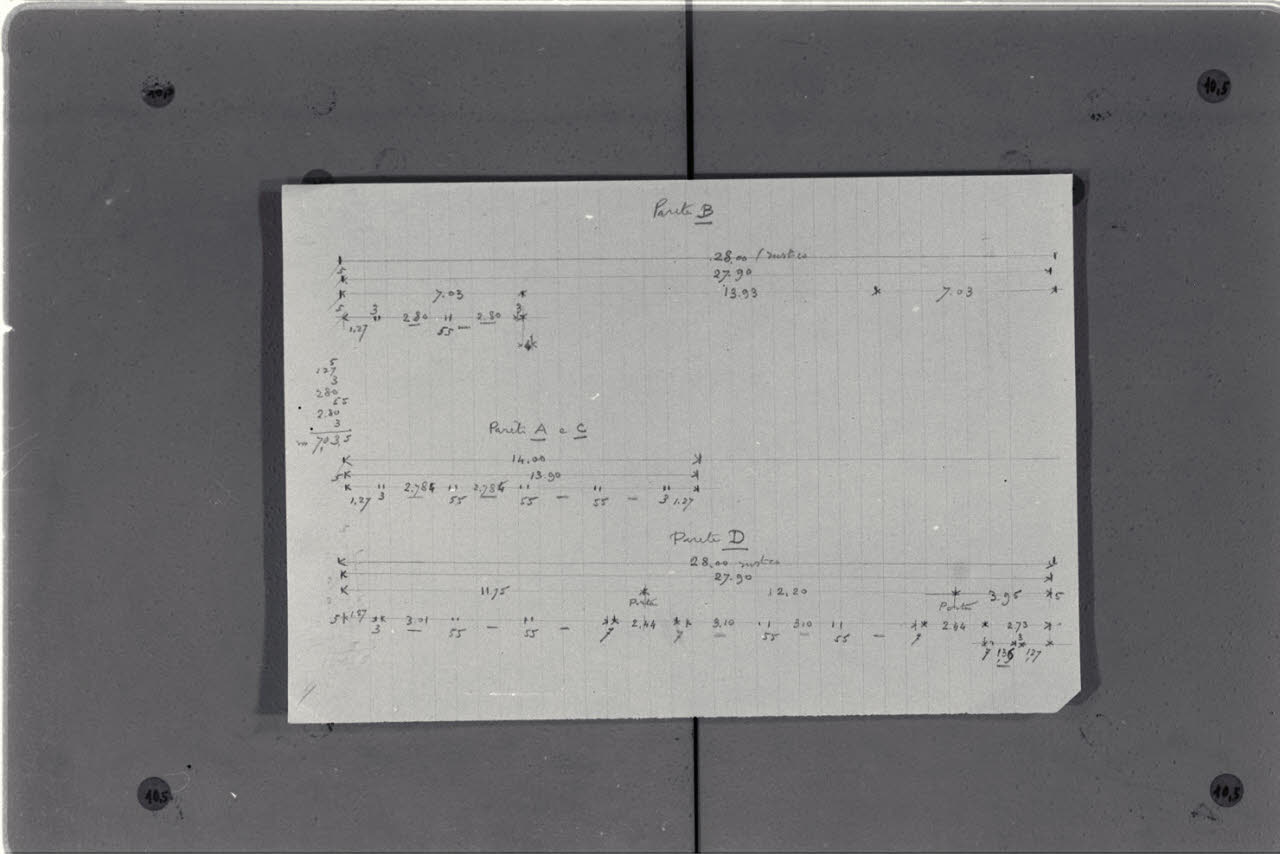 10,5
10,5
Parete B
28,00 / rustico
5
27.90
7.03 13.93 7.03
5 3 2.80 2.80 3
1,27 55
5
127
3
280
55
2.80
3
m 7,03,5
Pareti A e C
14.00
5 13.90
3 2.784 2.784
1,27 55 55 55 3 1.27
Parete D
28,00 rustico
27.90
11.75 12.20 3.95 5
Porta Porta
5 1.27 3.01 2.44 3.10 3.10 2.44 2.73
3 55 55 7 7 55 55 7
3
7 1,27
10,5
10,5